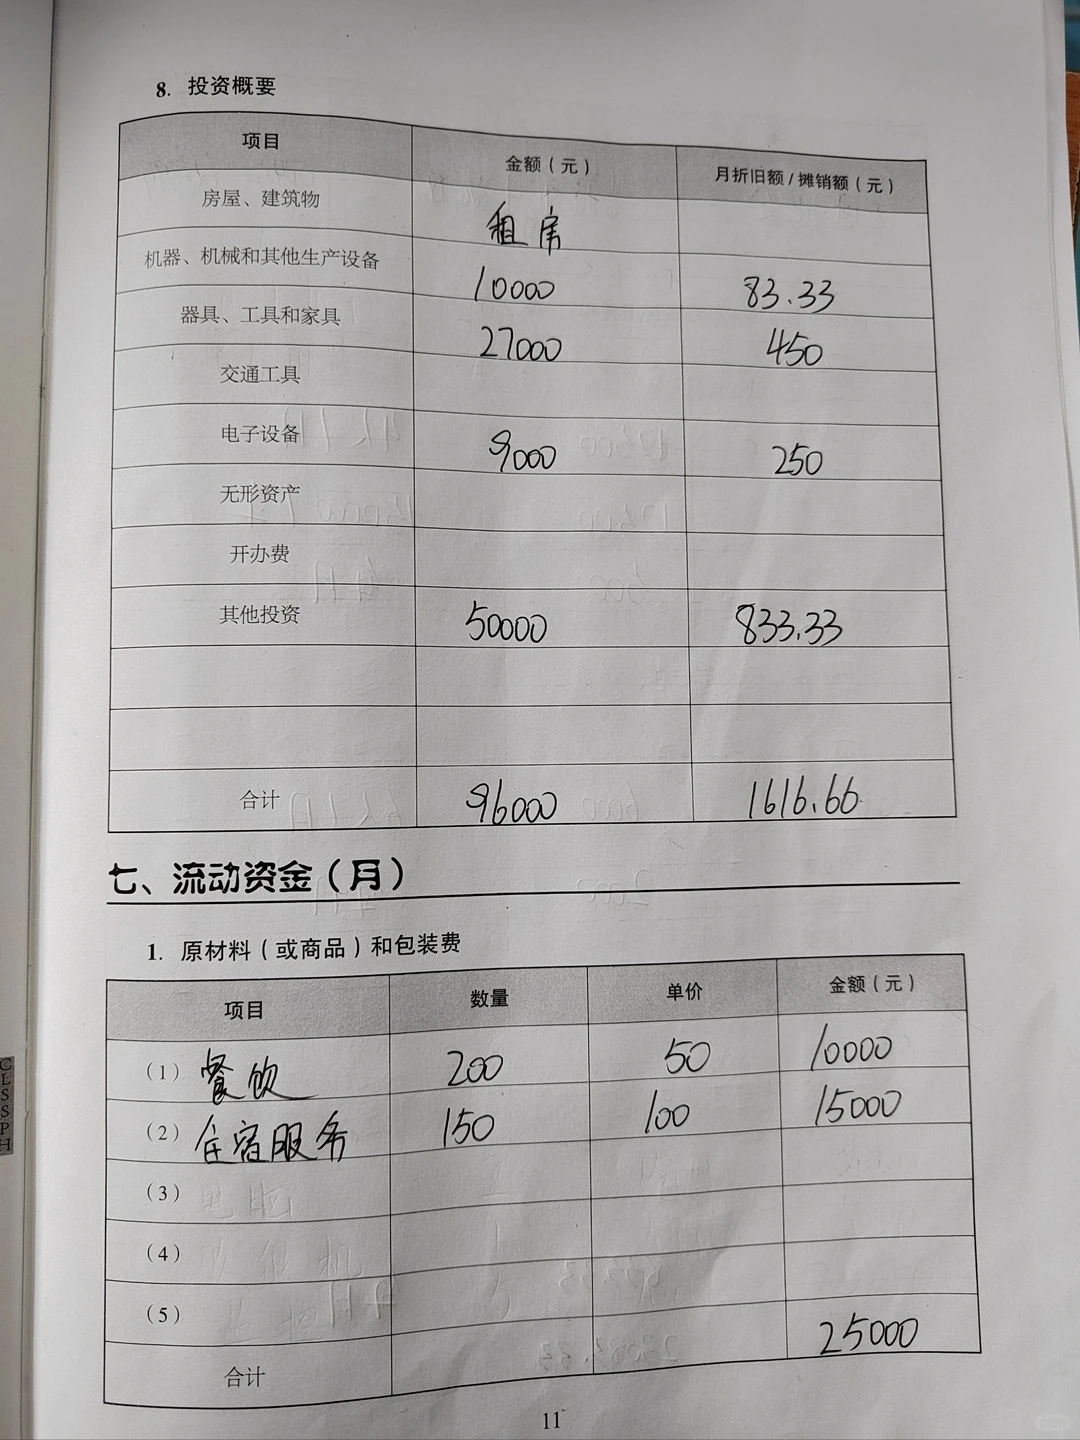 8. 投资概要
项目 金额（元） 月折旧额/摊销额（元）
房屋、建筑物 租房
机器、机械和其他生产设备 10000 83.33
器具、工具和家具 27000 450
交通工具
电子设备 9000 250
无形资产
开办费
其他投资 50000 833.33
合计 96000 1616.66
七、流动资金（月）
1. 原材料（或商品）和包装费
项目 数量 单价 金额（元）
（1）餐饮 200 50 10000
（2）住宿服务 150 100 15000
（3）
（4）
（5）
合计 25000
CLSSPH
11